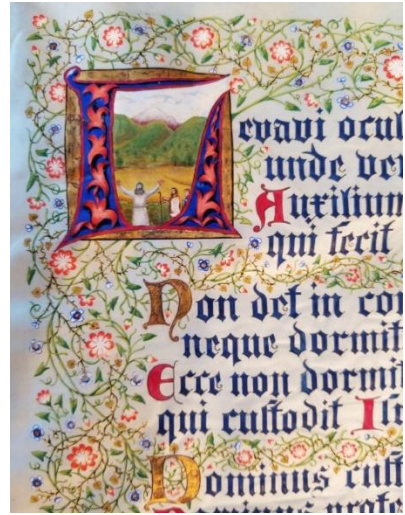 Levavi ocul
unde ve
Auxilium
qui fecit
Non det in co
neque dormit
Ecce non dormit
qui custodit Is
Dominus cust
Dominus prote